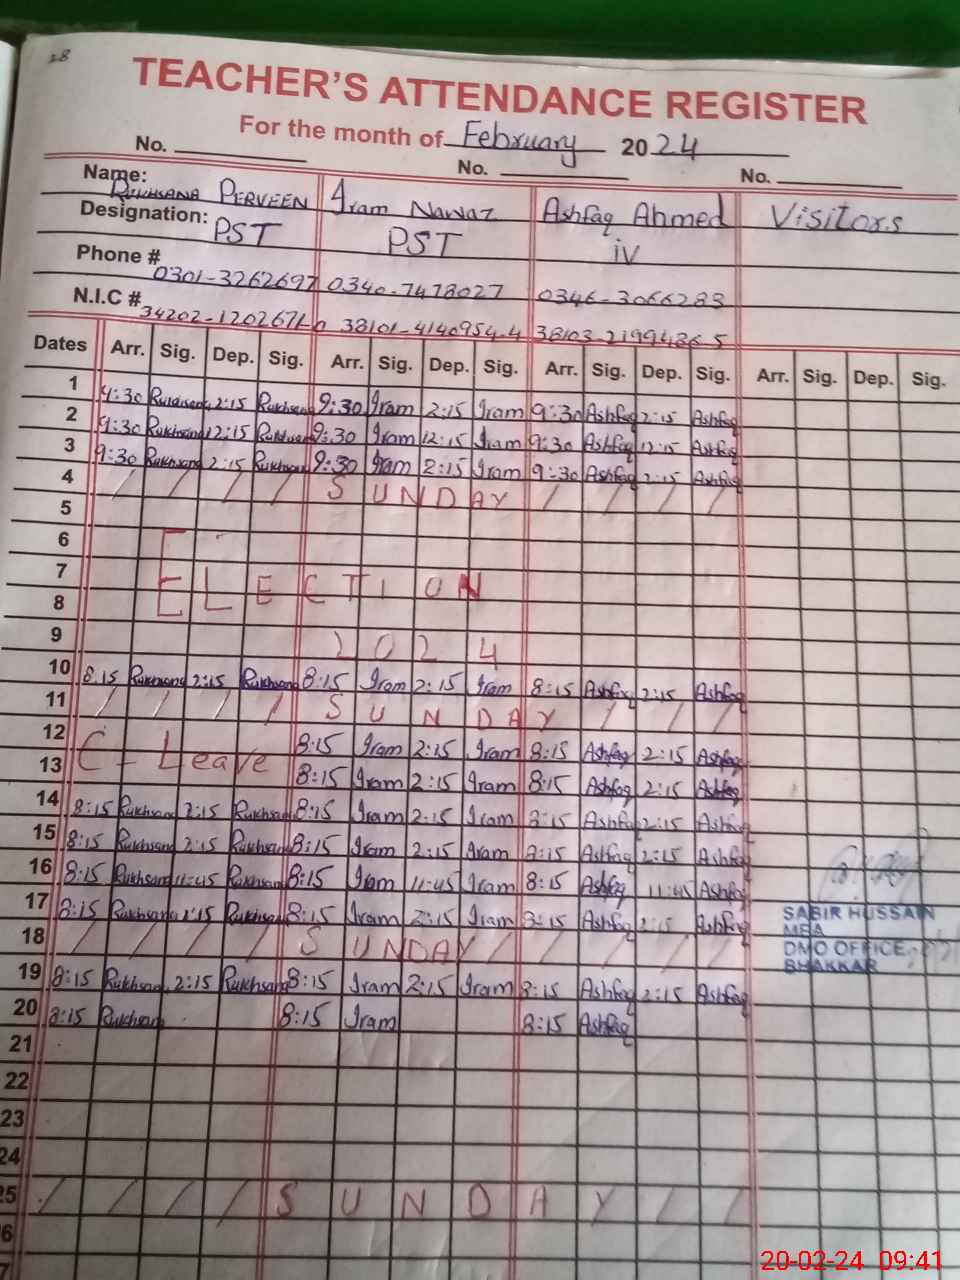 28
TEACHER'S ATTENDANCE REGISTER
For the month of February 2024
No. No. No.
Name: Rukhsana Perveen Iram Nawaz Ashfaq Ahmed Visitors
Designation: PST PST iv
Phone # 0301-3262697 0340-7478027 0346-3066283
N.I.C # 34202-1202671-0 38101-4140954-4 38103-2199486-5
Dates Arr. Sig. Dep. Sig. Arr. Sig. Dep. Sig. Arr. Sig. Dep. Sig. Arr. Sig. Dep. Sig.
1 9:30 Rukhsana 2:15 Rukhsana 9:30 Iram 2:15 Iram 9:30 Ashfaq 2:15 Ashfaq
2 9:30 Rukhsana 12:15 Rukhsana 9:30 Iram 12:15 Iram 9:30 Ashfaq 12:15 Ashfaq
3 9:30 Rukhsana 2:15 Rukhsana 9:30 Iram 2:15 Iram 9:30 Ashfaq 2:15 Ashfaq
4 / / / / SUNDAY / / / /
5
6
7 ELECTION
8
9 2024
10 8:15 Rukhsana 2:15 Rukhsana 8:15 Iram 2:15 Iram 8:15 Ashfaq 2:15 Ashfaq
11 / / / / SUNDAY / / /
12 8:15 Iram 2:15 Iram 8:15 Ashfaq 2:15 Ashfaq
13 C - Leave 8:15 Iram 2:15 Iram 8:15 Ashfaq 2:15 Ashfaq
14 8:15 Rukhsana 2:15 Rukhsana 8:15 Iram 2:15 Iram 8:15 Ashfaq 2:15 Ashfaq
15 8:15 Rukhsana 2:15 Rukhsana 8:15 Iram 2:15 Iram 8:15 Ashfaq 2:15 Ashfaq
16 8:15 Rukhsana 11:45 Rukhsana 8:15 Iram 11:45 Iram 8:15 Ashfaq 11:45 Ashfaq
17 8:15 Rukhsana 2:15 Rukhsana 8:15 Iram 2:15 Iram 8:15 Ashfaq 2:15 Ashfaq
SABIR HUSSAIN
MEA
DMO OFFICE
BHAKKAR
18 / / / / SUNDAY / / / / /
19 8:15 Rukhsana 2:15 Rukhsana 8:15 Iram 2:15 Iram 8:15 Ashfaq 2:15 Ashfaq
20 8:15 Rukhsana 8:15 Iram 8:15 Ashfaq
21
22
23
24
25 / / / / SUNDAY / /
6
7
20-02-24 09:41